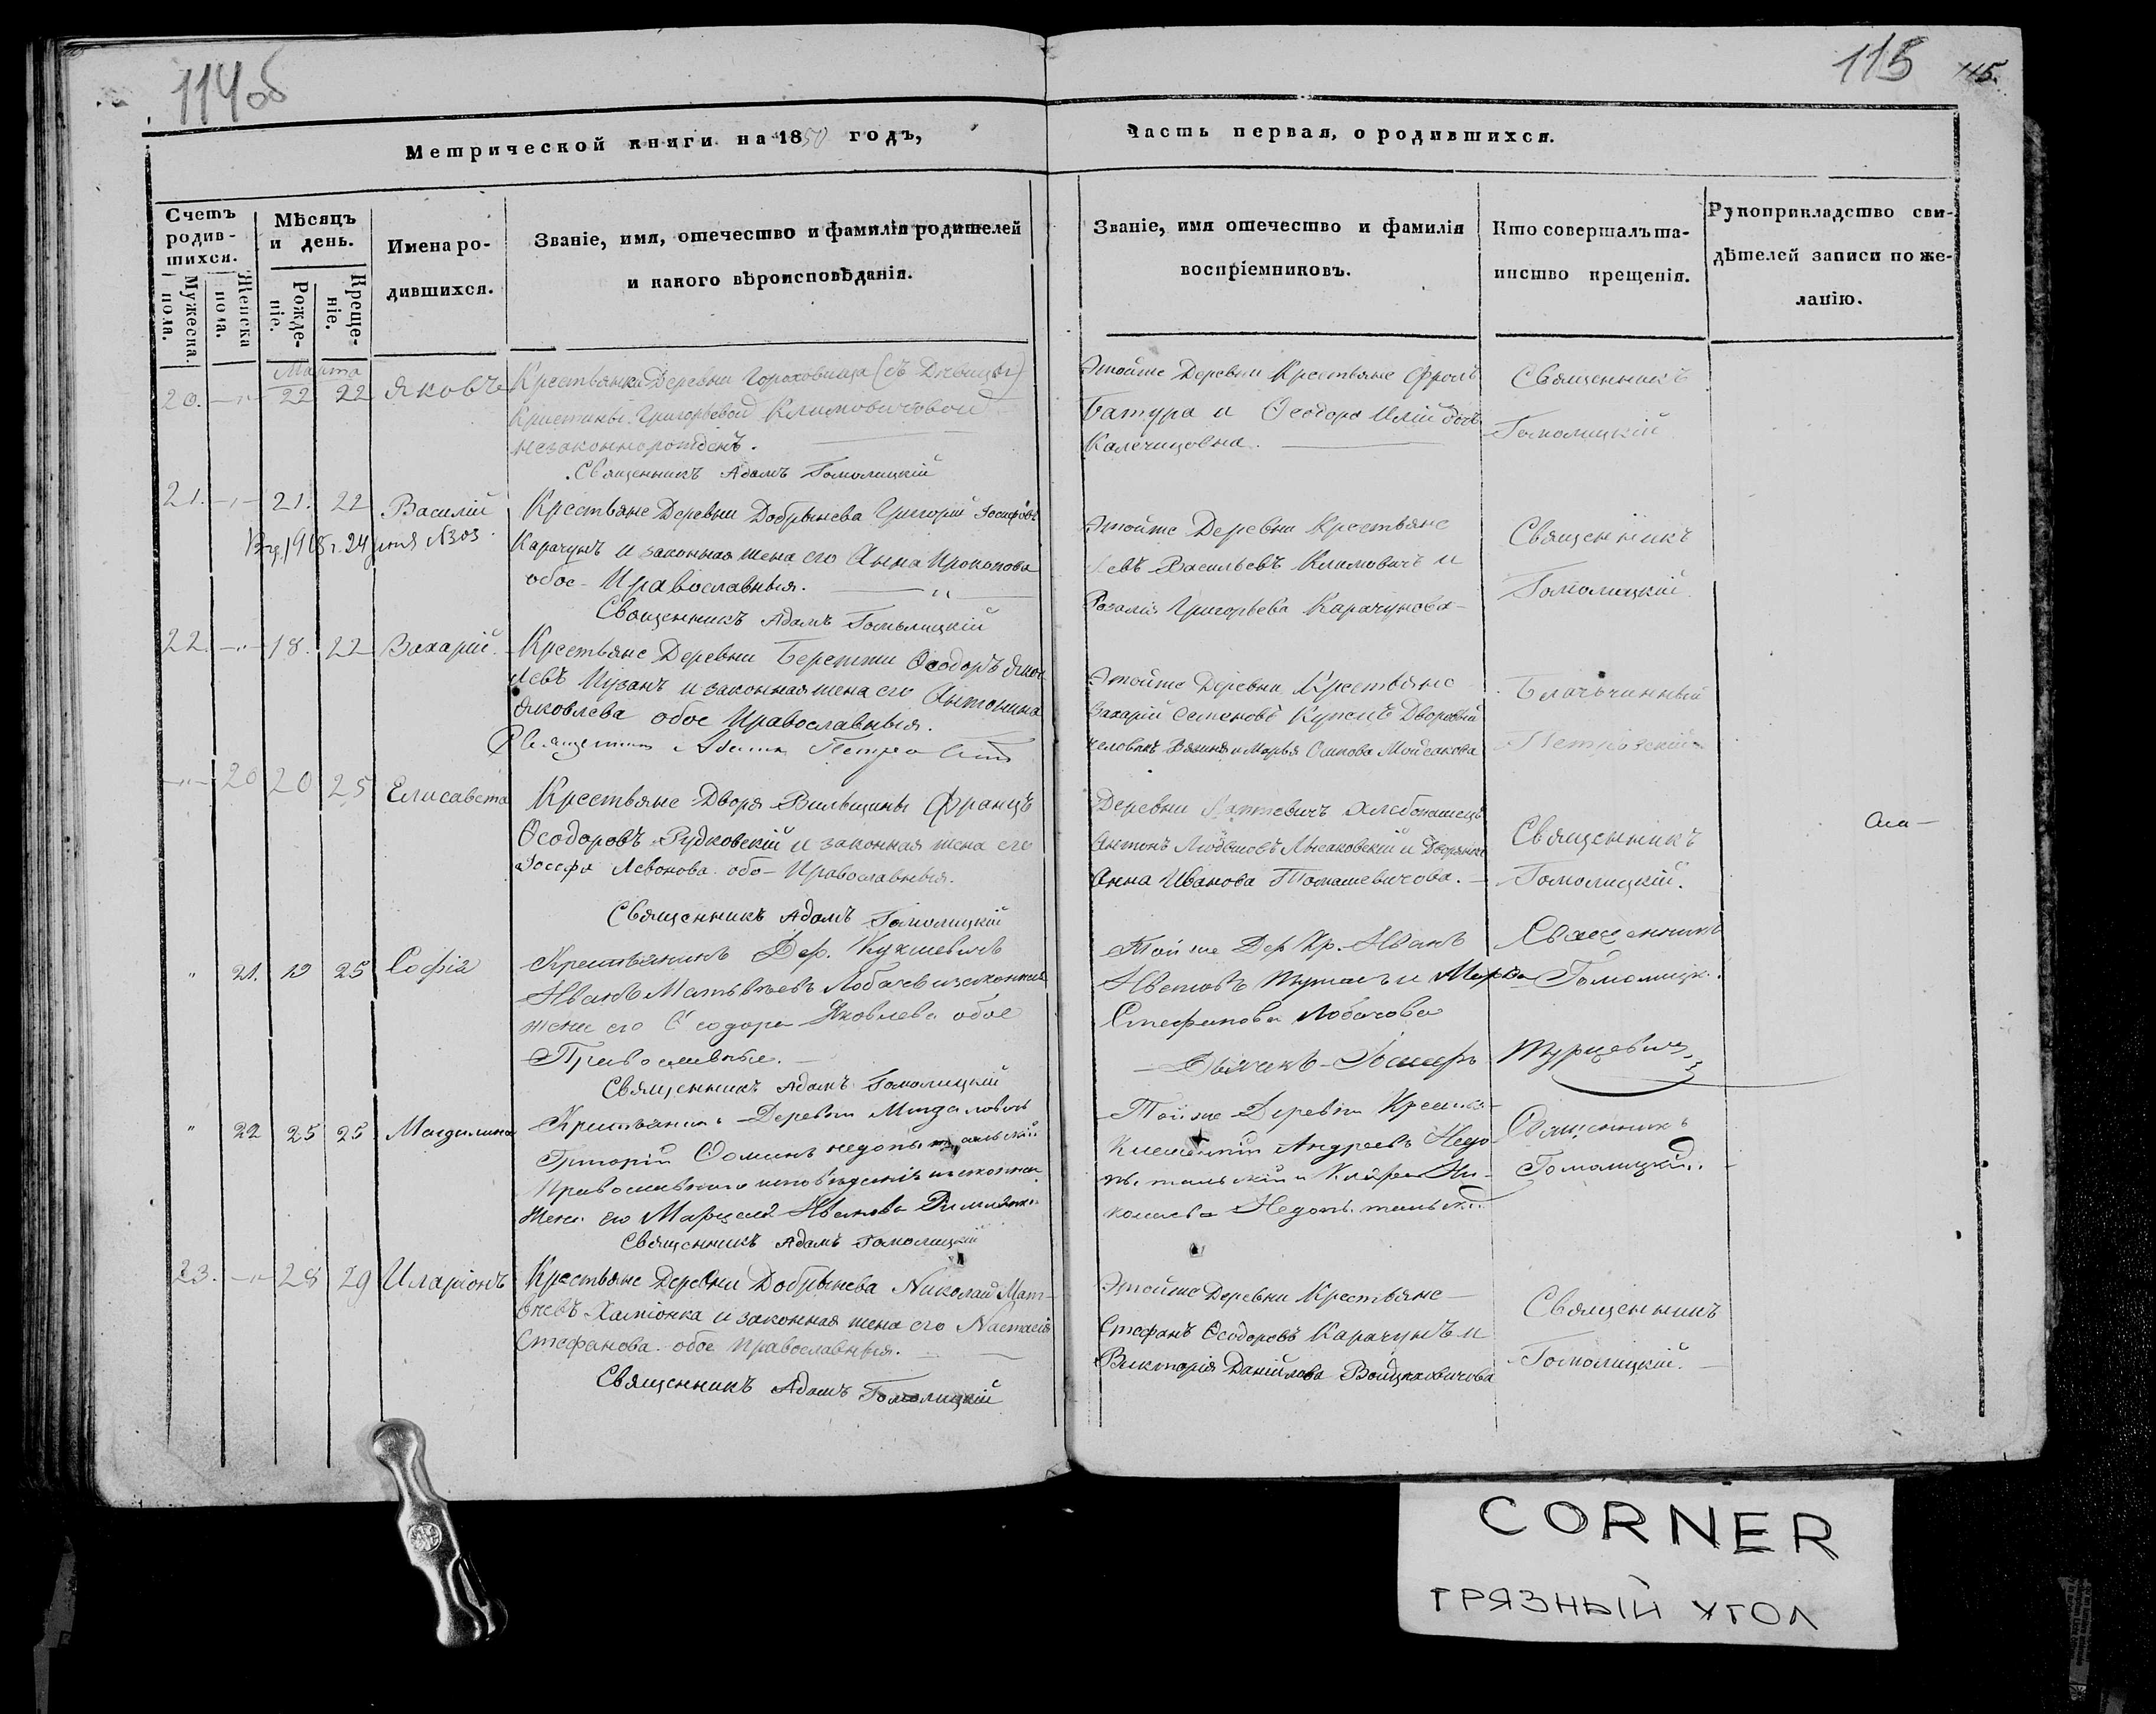 114об
115
115.
Метрической книги на 1850 годъ,
Часть первая, о родившихся.
Счетъ родив-шихся.
Мужеска пола.
Женска пола.
Мѣсяцъ и день.
Рожде-ніе.
Креще-ніе.
Имена ро-
дившихся.
Званіе, имя, отечество и фамилія родителей
и какого вѣроисповѣданія.
Званіе, имя отечество и фамилія
воспріемниковъ.
Кто совершалъ та-
инство крещенія.
Рукоприкладство сви-
дѣтелей записи по же-
ланію.
Марта
20. 22 22 Яковъ
Крестьянки Деревни Гороховища
Кристины Григорьевой Климовичовой
незаконнорожденъ.
Священникъ Адамъ Гомолицкій
Этойже Деревни Крестьяне Фролъ
Батура и Ѳеодора
Калечицовна.
Священникъ
Гомолицкій
21. 21. 22 Василій
24 №303.
Крестьяне Деревни Добрынева Григорій Іосифовъ
Карачунъ и законная жена его Анна Прокопова
обое Православныя.
Священникъ Адамъ Гомолицкій
Этойже Деревни Крестьяне
Левъ Васильевъ Климовичъ и
Розалія Григорьева Карачунова
Священникъ
Гомолицкій.
22. 18. 22 Захарій.
Крестьяне Деревни Бережки Ѳеодоръ Яков
левъ Пузанъ и законная жена его Антонина
Яковлева обое Православныя.
Священникъ
Этойже Деревни Крестьяне
Захарій Семеновъ Дворовый
человѣкъ и Марья Осипова
Благочинный
20 20 25 Елисавета
Крестьяне Двора Вильщины Францъ
Ѳеодоровъ Рудковскій и законная жена его
Іосефа Левонова обо- Православныя.
Священникъ Адамъ Гомолицкій
Деревни
Антонъ Лысаковскій и Дворянка
Анна Иванова Томашевичова.
Священникъ
Гомолицкій.
" 21. 19 25 Софія
Крестьянинъ Дер. Кукшевичъ
Иванъ Матвѣевъ Лобачъ и законная
жена его Ѳеодора Яковлева обое
Православные.
Священникъ Адамъ Гомолицкій
Той же Дер Кр. Иванъ
и Марья
Стефанова Лобачова
Дьячекъ Іосифъ Турцевичъ
Священникъ
Гомолицк.
" 22 25 25 Магдалина
Крестьянинъ Деревни
Григорій Ѳоминъ
Православнаго исповѣданія и законная
жена его Марцела Иванова Римлянка
Священникъ Адамъ Гомолицкій
Той же Деревни Крестья-
Климентій Андреевъ Недо-
Священникъ
Гомолицкій.
23. 28 29 Иларіонъ
Крестьяне Деревни Добрынева Николай Мат-
ѳеевъ Халіонка и законная жена его Настасія
Стефанова обое Православныя.
Священникъ Адамъ Гомолицкій
Этойже Деревни Крестьяне
Стефанъ Ѳеодоровъ Карачунъ и
Викторія Данійлова Войцеховичова
Священникъ
Гомолицкій.
CORNER
ГРЯЗНЫЙ УГОЛ